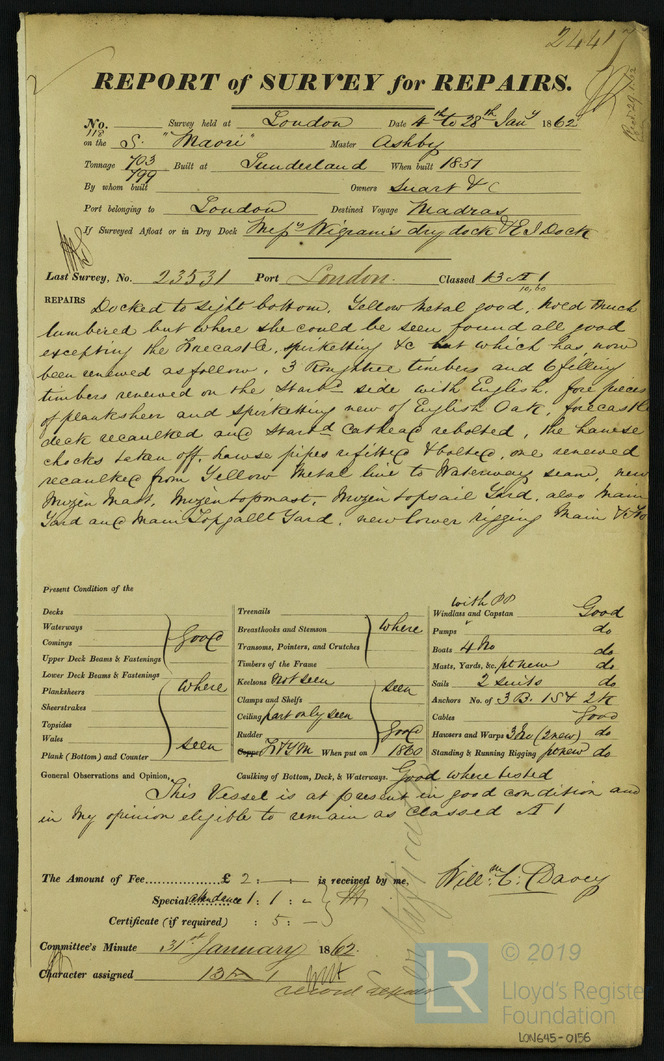 24417
Recd 29 1.62
REPORT of SURVEY for REPAIRS.
No. 118 Survey held at London Date 4th to 28th Jany 1862
on the S. "Maori" Master Ashby
Tonnage 703 799 Built at Sunderland When built 1851
By whom built Owners & C
Port belonging to London Destined Voyage Madras
If Surveyed Afloat or in Dry Dock Messrs Wigrams dry dock & E I Dock
Last Survey, No. 23531 Port London. Classed 13 A 1
10,60
REPAIRS Docked to sight bottom, Yellow Metal good, hold much
lumbered but where she could be seen found all good
excepting the Forecastle, spirketting &c but which has now
been renewed as follow. 3 Roughtree timbers and 6 filling
timbers renewed on the Starbd side with English, fore pieces
of planksheer and spirketting new of English Oak, forecastle
deck recaulked and Starbd Cathead rebolted, the hawse
chocks taken off, hawse pipes refitted & bolted, one renewed
recaulked from Yellow Metal line to Waterway seam, new
Mizen Mast, Mizen topmast, Mizen topsail Yard, also Main
Yard and Main Topgallt Yard, new lower rigging Main & Fore
Present Condition of the
Decks
Waterways
Comings
Upper Deck Beams & Fastenings
Good
Lower Deck Beams & Fastenings
Plansheers
Sheerstrakes
Topsides
Wales
Plank (Bottom) and Counter
where
seen
Treenails
Breasthooks and Stemson
Transoms, Pointers, and Crutches
Timbers of the Frame
where
Keelsons Not seen
Clamps and Shelfs
Ceiling part only seen
seen
Rudder Good
Copper F&YM When put on 1860
with PP
Windlass and Capstan Good
Pumps " do
Boats 4 No do
Masts, Yards, &c. pt new do
Sails 2 suits do
Anchors No. of 3 B. 1 S & 2 K
Cables Good
Hawsers and Warps 3 No (2 new) do
Standing & Running Rigging pt new do
General Observations and Opinion, Caulking of Bottom, Deck, & Waterways. Good where tested
This Vessel is at present in good condition and
in my opinion eligible to remain as classed A 1
The Amount of Fee £ 2 : - : - is received by me,
Special attendance 1 : 1 : -
Certificate (if required) : 5 : -
Willm C. Davey
Committee's Minute 31st January 1862.
Character assigned 13 A 1
record Repairs
LR
© 2019
Lloyd's Register
Foundation
LON645-0156